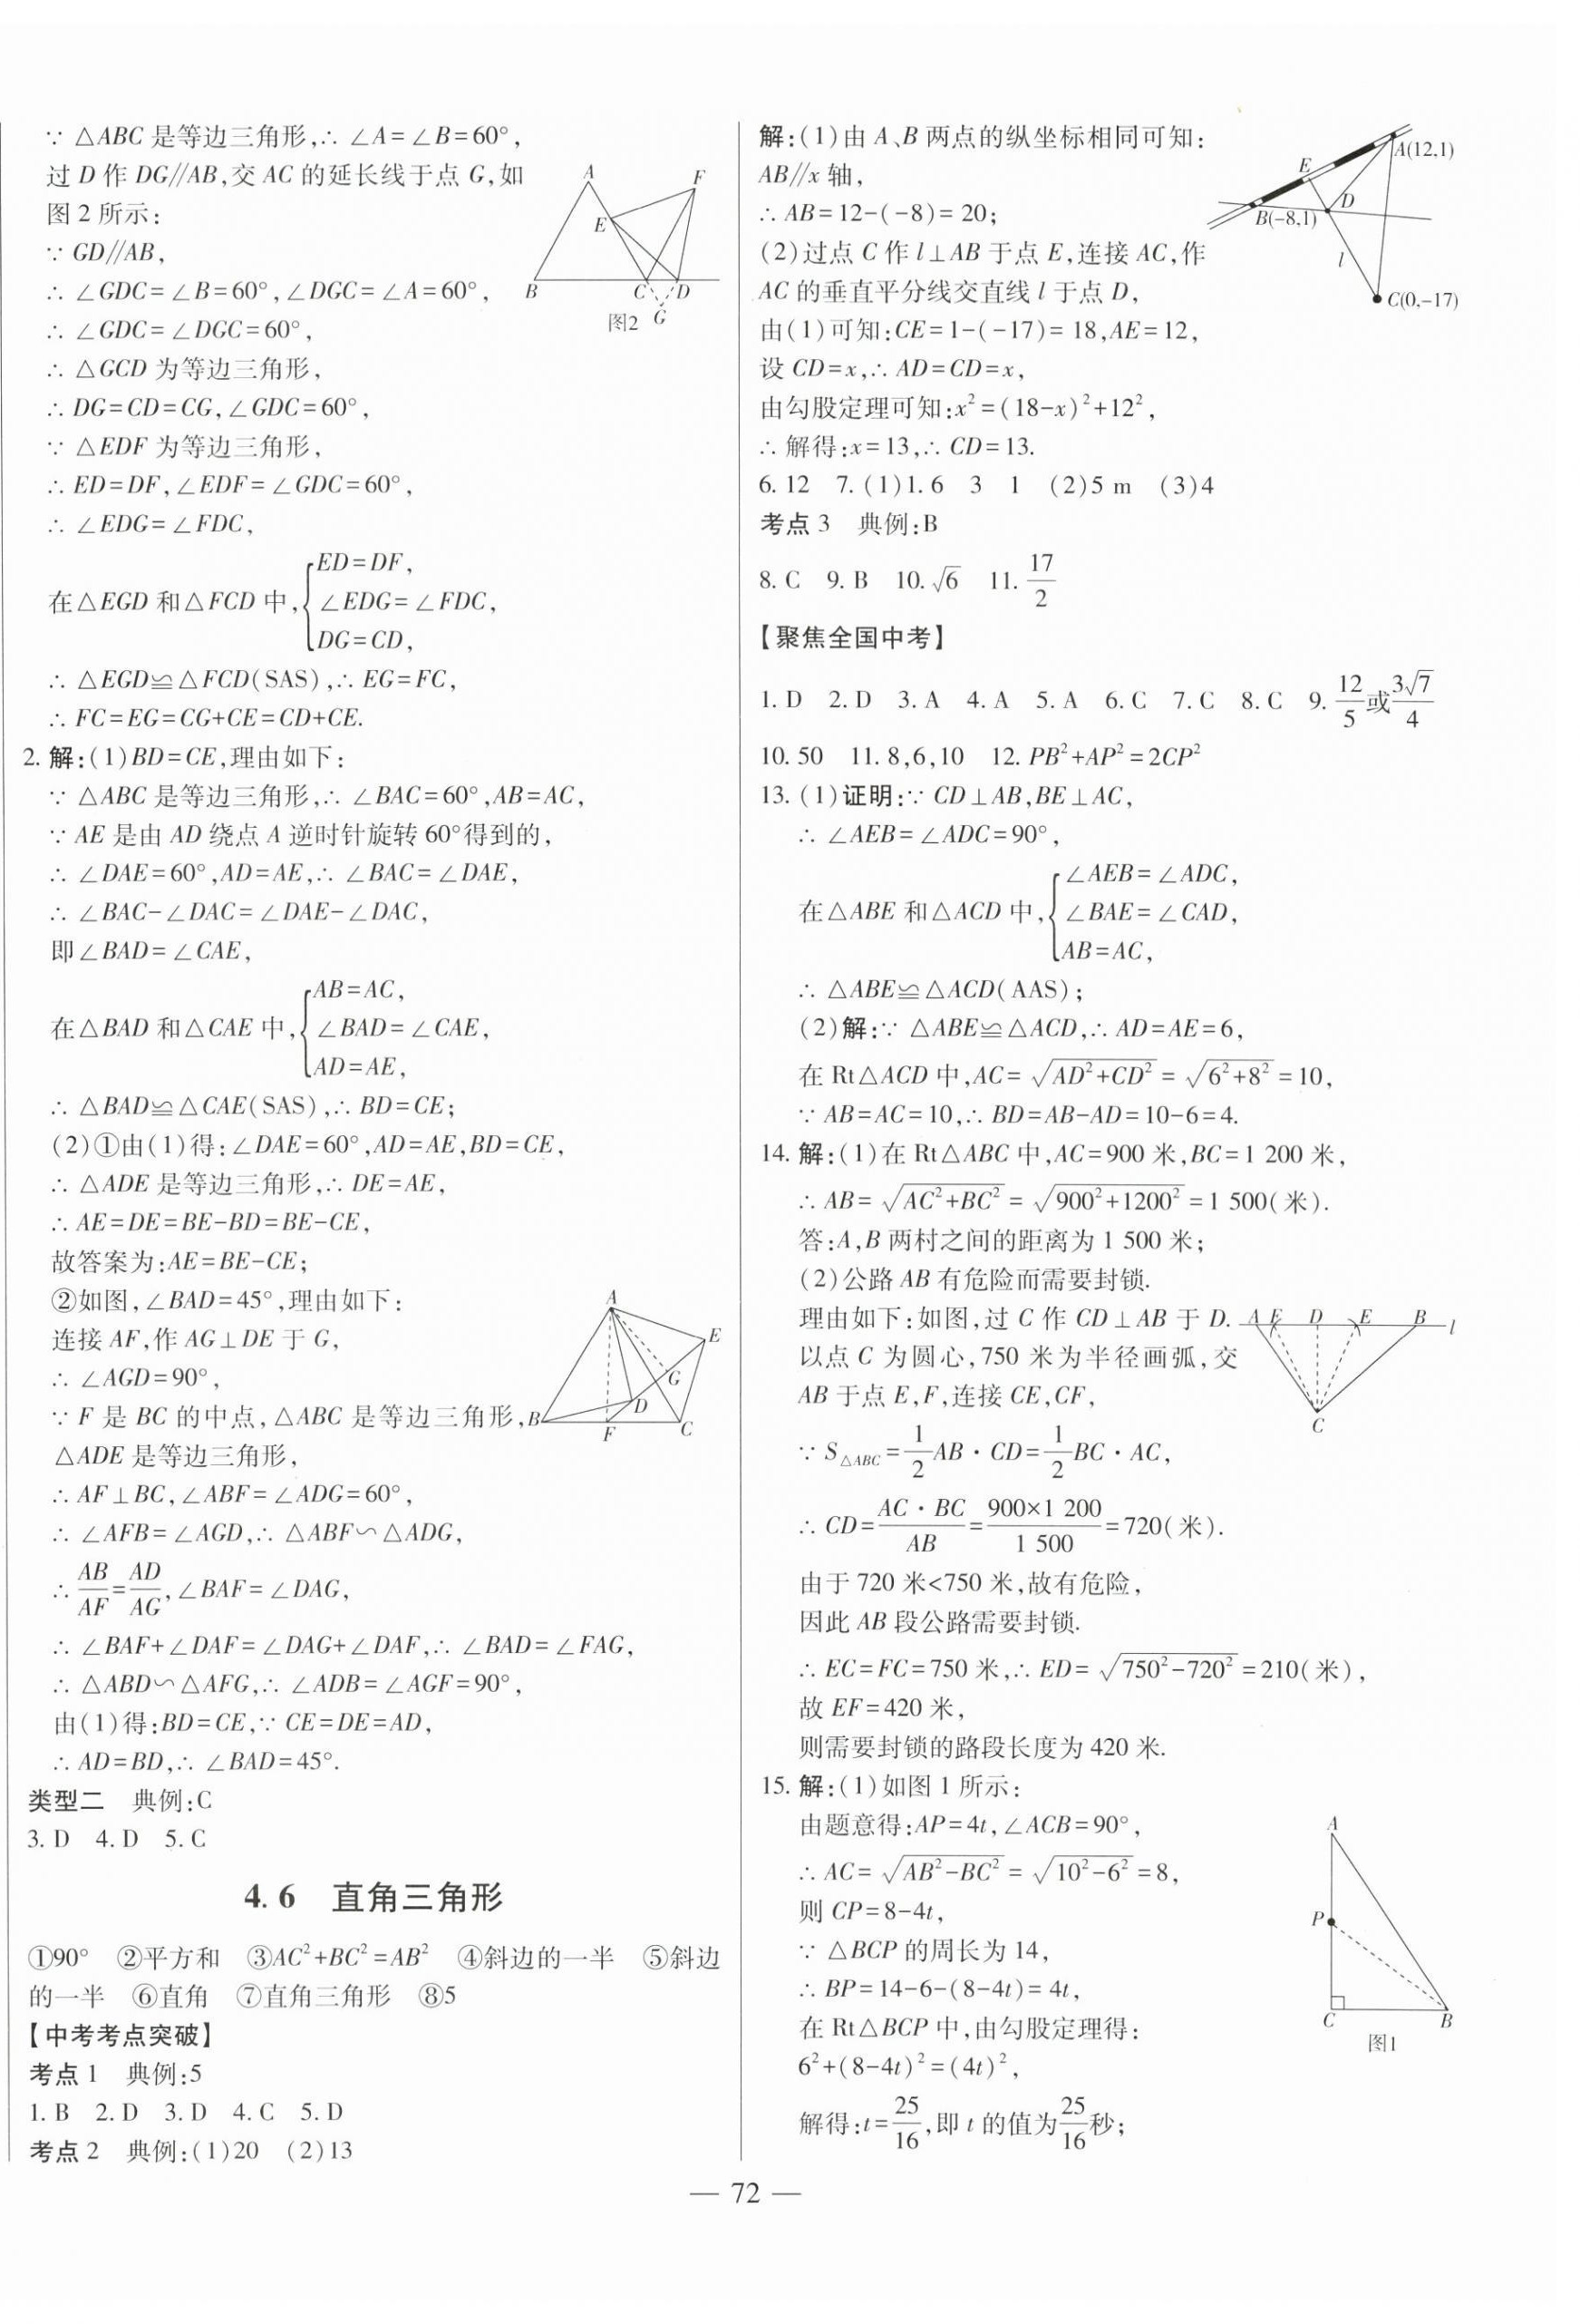 ∵ △ABC 是等边三角形,∴ ∠A=∠B=60°,
过 D 作 DG∥AB,交 AC 的延长线于点 G,如
图 2 所示:
∵ GD∥AB,
∴ ∠GDC=∠B=60°,∠DGC=∠A=60°,
∴ ∠GDC=∠DGC=60°,
∴ △GCD 为等边三角形,
∴ DG=CD=CG,∠GDC=60°,
∵ △EDF 为等边三角形,
∴ ED=DF,∠EDF=∠GDC=60°,
∴ ∠EDG=∠FDC,
在△EGD 和△FCD 中,{ED=DF, ∠EDG=∠FDC, DG=CD,
∴ △EGD≌△FCD(SAS),∴ EG=FC,
∴ FC=EG=CG+CE=CD+CE.
A F E B C D G
图2
2. 解:(1)BD=CE,理由如下:
∵ △ABC 是等边三角形,∴ ∠BAC=60°,AB=AC,
∵ AE 是由 AD 绕点 A 逆时针旋转 60°得到的,
∴ ∠DAE=60°,AD=AE,∴ ∠BAC=∠DAE,
∴ ∠BAC-∠DAC=∠DAE-∠DAC,
即∠BAD=∠CAE,
在△BAD 和△CAE 中,{AB=AC, ∠BAD=∠CAE, AD=AE,
∴ △BAD≌△CAE(SAS),∴ BD=CE;
(2)①由(1)得:∠DAE=60°,AD=AE,BD=CE,
∴ △ADE 是等边三角形,∴ DE=AE,
∴ AE=DE=BE-BD=BE-CE,
故答案为:AE=BE-CE;
②如图,∠BAD=45°,理由如下:
连接 AF,作 AG⊥DE 于 G,
∴ ∠AGD=90°,
∵ F 是 BC 的中点,△ABC 是等边三角形,
△ADE 是等边三角形,
∴ AF⊥BC,∠ABF=∠ADG=60°,
∴ ∠AFB=∠AGD,∴ △ABF∽△ADG,
∴ AB/AF=AD/AG,∠BAF=∠DAG,
∴ ∠BAF+∠DAF=∠DAG+∠DAF,∴ ∠BAD=∠FAG,
∴ △ABD∽△AFG,∴ ∠ADB=∠AGF=90°,
由(1)得:BD=CE,∵ CE=DE=AD,
∴ AD=BD,∴ ∠BAD=45°.
A E G D B F C
类型二 典例:C
3. D 4. D 5. C
4. 6 直角三角形
①90° ②平方和 ③AC²+BC²=AB² ④斜边的一半 ⑤斜边
的一半 ⑥直角 ⑦直角三角形 ⑧5
【中考考点突破】
考点 1 典例:5
1. B 2. D 3. D 4. C 5. D
考点 2 典例:(1)20 (2)13
解:(1)由 A、B 两点的纵坐标相同可知:
AB∥x 轴,
∴ AB=12-(-8)=20;
(2)过点 C 作 l⊥AB 于点 E,连接 AC,作
AC 的垂直平分线交直线 l 于点 D,
由(1)可知:CE=1-(-17)=18,AE=12,
设 CD=x,∴ AD=CD=x,
由勾股定理可知:x²=(18-x)²+12²,
∴ 解得:x=13,∴ CD=13.
A(12,1) E D B(-8,1) l C(0,-17)
6. 12 7. (1)1. 6 3 1 (2)5 m (3)4
考点 3 典例:B
8. C 9. B 10. √6 11. 17/2
【聚焦全国中考】
1. D 2. D 3. A 4. A 5. A 6. C 7. C 8. C 9. 12/5或3√7/4
10. 50 11. 8,6,10 12. PB²+AP²=2CP²
13. (1)证明:∵ CD⊥AB,BE⊥AC,
∴ ∠AEB=∠ADC=90°,
在△ABE 和△ACD 中,{∠AEB=∠ADC, ∠BAE=∠CAD, AB=AC,
∴ △ABE≌△ACD(AAS);
(2)解:∵ △ABE≌△ACD,∴ AD=AE=6,
在 Rt△ACD 中,AC=√(AD²+CD²)=√(6²+8²)=10,
∵ AB=AC=10,∴ BD=AB-AD=10-6=4.
14. 解:(1)在 Rt△ABC 中,AC=900 米,BC=1 200 米,
∴ AB=√(AC²+BC²)=√(900²+1200²)=1 500(米).
答:A,B 两村之间的距离为 1 500 米;
(2)公路 AB 有危险而需要封锁.
理由如下:如图,过 C 作 CD⊥AB 于 D.
以点 C 为圆心,750 米为半径画弧,交
AB 于点 E,F,连接 CE,CF,
A F D E B l C
∵ S△ABC=1/2AB·CD=1/2BC·AC,
∴ CD=AC·BC/AB=900×1 200/1 500=720(米).
由于 720 米<750 米,故有危险,
因此 AB 段公路需要封锁.
∴ EC=FC=750 米,∴ ED=√(750²-720²)=210(米),
故 EF=420 米,
则需要封锁的路段长度为 420 米.
15. 解:(1)如图 1 所示:
由题意得:AP=4t,∠ACB=90°,
∴ AC=√(AB²-BC²)=√(10²-6²)=8,
则 CP=8-4t,
∵ △BCP 的周长为 14,
∴ BP=14-6-(8-4t)=4t,
在 Rt△BCP 中,由勾股定理得:
6²+(8-4t)²=(4t)²,
解得:t=25/16,即 t 的值为25/16秒;
A P C B
图1
— 72 —